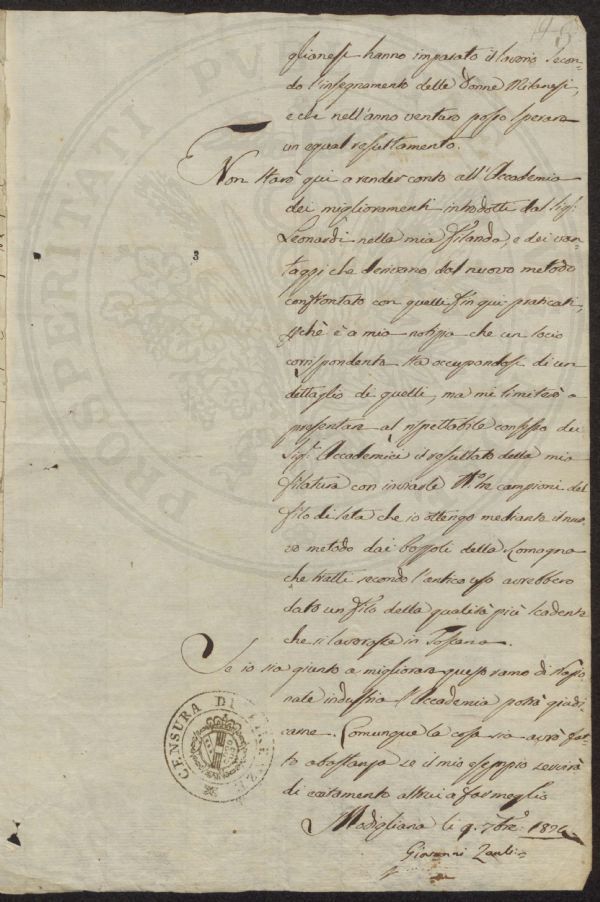 glianesi hanno imparato il lavoro secon-
do l'insegnamento delle Donne Milanesi,
e che nell'anno venturo posso sperare
un egual resultamento.
Non starò qui a render conto all'Accademia
dei miglioramenti introdotti dal Sig.
Leonardi nella mia Filanda, e dei van-
taggi che derivano dal nuovo metodo
confrontato con quelli fin qui praticati,
che è a mia notizia che un socio
corrispondente sta occupandosi di un
dettaglio di quelli, ma mi limiterò a
presentare al rispettabile consesso dei
Sig.ri Accademici il resultato della mia
filatura con inviarle N.o campioni del
filo di seta che io ottengo mediante il nuo-
vo metodo dai bozzoli della Romagna
che tratti secondo l'antico uso avrebbero
dato un filo della qualità più scadente
che si lavorasse in Toscana.
Se io sia giunto a migliorare questo ramo di Nazio-
nale industria l'Accademia potrà giudi-
carne. Comunque la cosa sia avrò fat-
to abbastanza se il mio esempio servirà
di eccitamento altrui a far meglio
Modigliana li 9. 7bre 1826
Giovanni Zauli
3
PROSPERITATI PVB
CENSURA DI FIRENZE